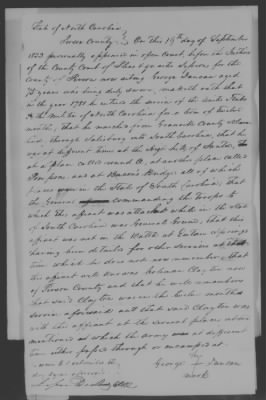 State of North Carolina
Person County On this 19th day of September
1833 personally appeared in open Court, before the Justices
of the County Court of Pleas & quarter Sessions for the
County of Person now siting George Duncan aged
75 years who being duly sworn, maketh oath that
in the year 1781 he entered the service of the United States
in the Militia of North Carolina for a tour of twelve
months, that he marched from Granville County
through Salisbury into South Carolina, that he
was at different times at the High hills of Santee,
at a place called at another place called
Pon pon, and at Bacon's Bridge, all of which
places in the State of South Carolina, that
the General commanding the troops to
which this affiant was attached while in the State
of South Carolina was General Greene, that this
affiant was not in the Battle at Eutaw Springs
having been detailed for other service at that
time which he does not now remember, that
this affiant well knows Coleman Clayton now
of Person County and that he well remembers
that said Clayton was in the twelve months
service aforesaid and that said Clayton was
with this affiant at the several places above
mentioned in which the army was at different
times either passed through or encamped at.
Sworn & subscribed
day & year aforesaid
George his Duncan
mark